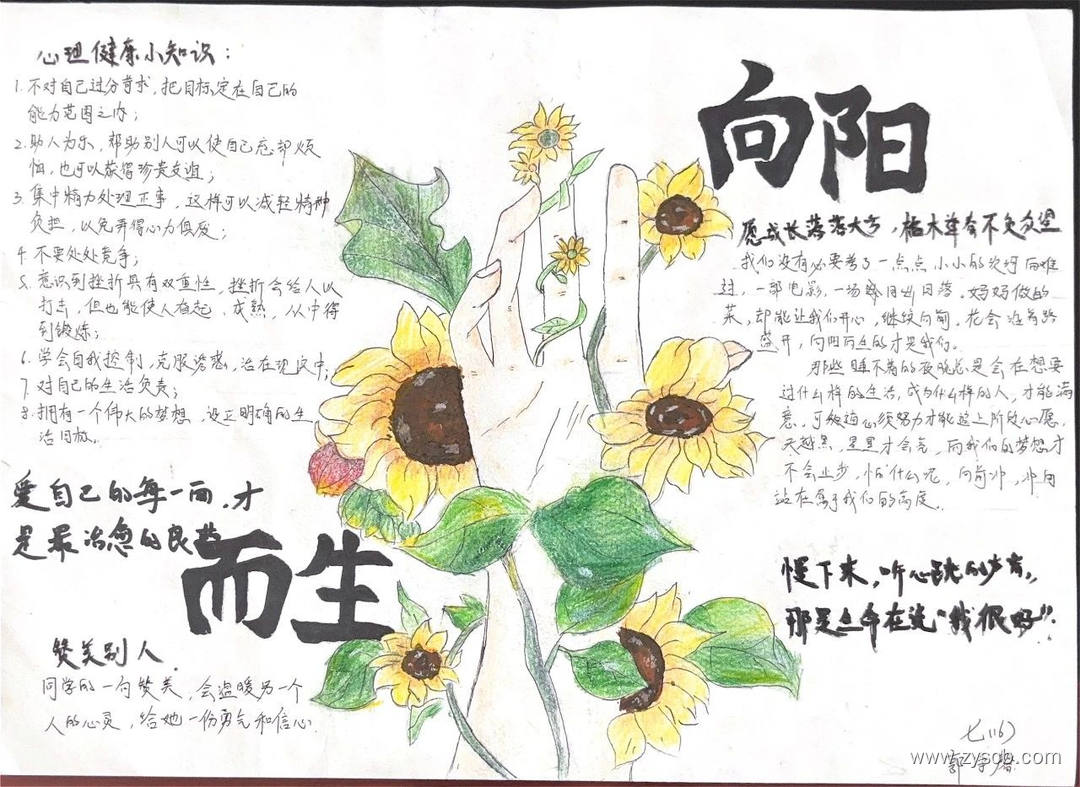 心理健康小知识：
1. 不对自己过分苛求，把目标定在自己的
能力范围之内；
2. 助人为乐，帮助别人可以使自己忘却烦
恼，也可以获得珍贵友谊；
3. 集中精力处理正事，这样可以减轻精神
负担，以免弄得心力俱疲；
4 不要处处竞争；
5. 意识到挫折具有双重性，挫折会给人以
打击，但也能使人奋起、成熟，从中得
到锻炼；
6. 学会自我控制，克服诱惑，活在现实中；
7 对自己的生活负责；
8. 拥有一个伟大的梦想，设正明确的生
活目标。
爱自己的每一面，才
是最治愈的良药
向阳
而生
赞美别人
同学的一句赞美，会温暖另一个
人的心灵，给她一份勇气和信心
愿成长落落大方，枯木逢春不负众望
我们没有必要为了一点点小小的坎坷而难
过，一部电影，一场日出日落，妈妈做的
菜，却能让我们开心，继续向前。花会沿着路
盛开，向阳而生的才是我们。
那些睡不着的夜晚总是会在想要
过什么样的生活，成为什么样的人，才能满
意，可能必须努力才能达上阶段心愿，
天越黑，星星才会亮，而我们的梦想才
不会止步，怕什么呢，向前冲，冲向
站在属于我们的高度.
慢下来，听心跳的声音，
那是生命在说“我很好”.
七(16)
www.zyscb.com